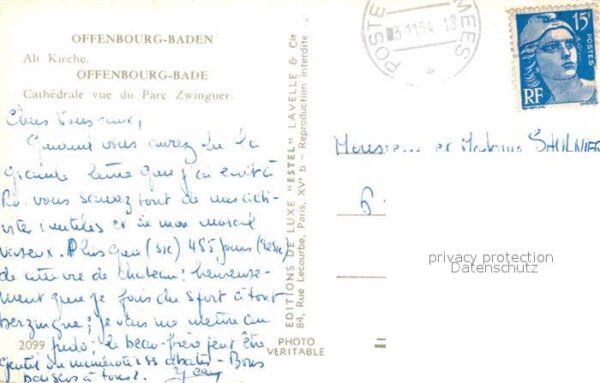 OFFENBOURG-BADEN
Alt Kirche.
OFFENBOURG-BADE
Cathédrale vue du Parc Zwinguer.
Chers Vous aux,
Quand vous aurez lu la
grande lettre que j'ai écrit à
vous saurez tout de mes acti-
inutiles et de mon moral
vaseux. Plus que (sic) 455 jours
de cette vie de chateau; heureuse-
ment que je fais du sport à tout
berzingue; je vais me mettre au
judo; le beau-frère peut être
gentil
Bons
baisers à tous.
2099
PHOTO
VERITABLE
EDITIONS DE LUXE "ESTEL" LAVELLE & Cie
84, Rue Lecourbe, Paris, XVe - Reproduction interdite
POSTE
MEES
3.1154
18
15F
POSTES
RF
Monsieur et Madame SAULNIER
6
privacy protection
Datenschutz